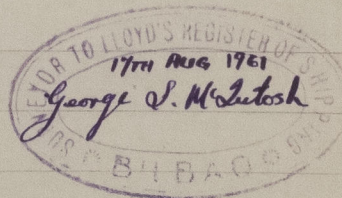 SURVEYOR TO LLOYD'S REGISTER OF SHIPPING
17TH AUG 1961
George S. McIntosh
BILBAO